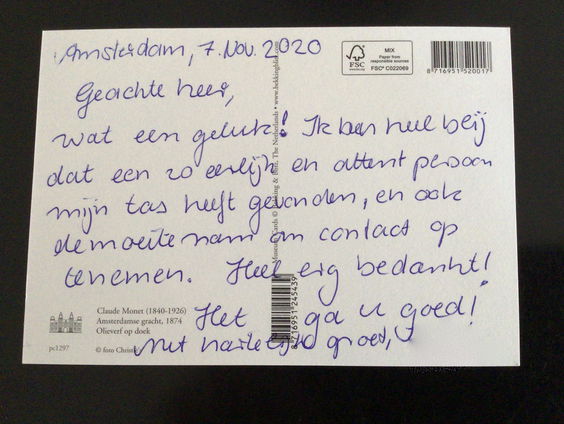 Amsterdam, 7. Nov. 2020
MIX
Paper from
responsible sources
FSC
www.fsc.org
FSC® C022069
8 716951 520017
Geachte heer,
wat een geluk! Ik ben heel blij
dat een zo eerlijk en attent persoon
mijn tas heeft gevonden, en ook
de moeite nam om contact op
te nemen. Heel erg bedankt!
Het ga u goed!
Met hartelijke groet,
Museum Cards © Bekking & Blitz, The Netherlands • www.bekkingblitz.com
8 716951 245439
Claude Monet (1840-1926)
Amsterdamse gracht, 1874
Olieverf op doek
pc1297
© foto